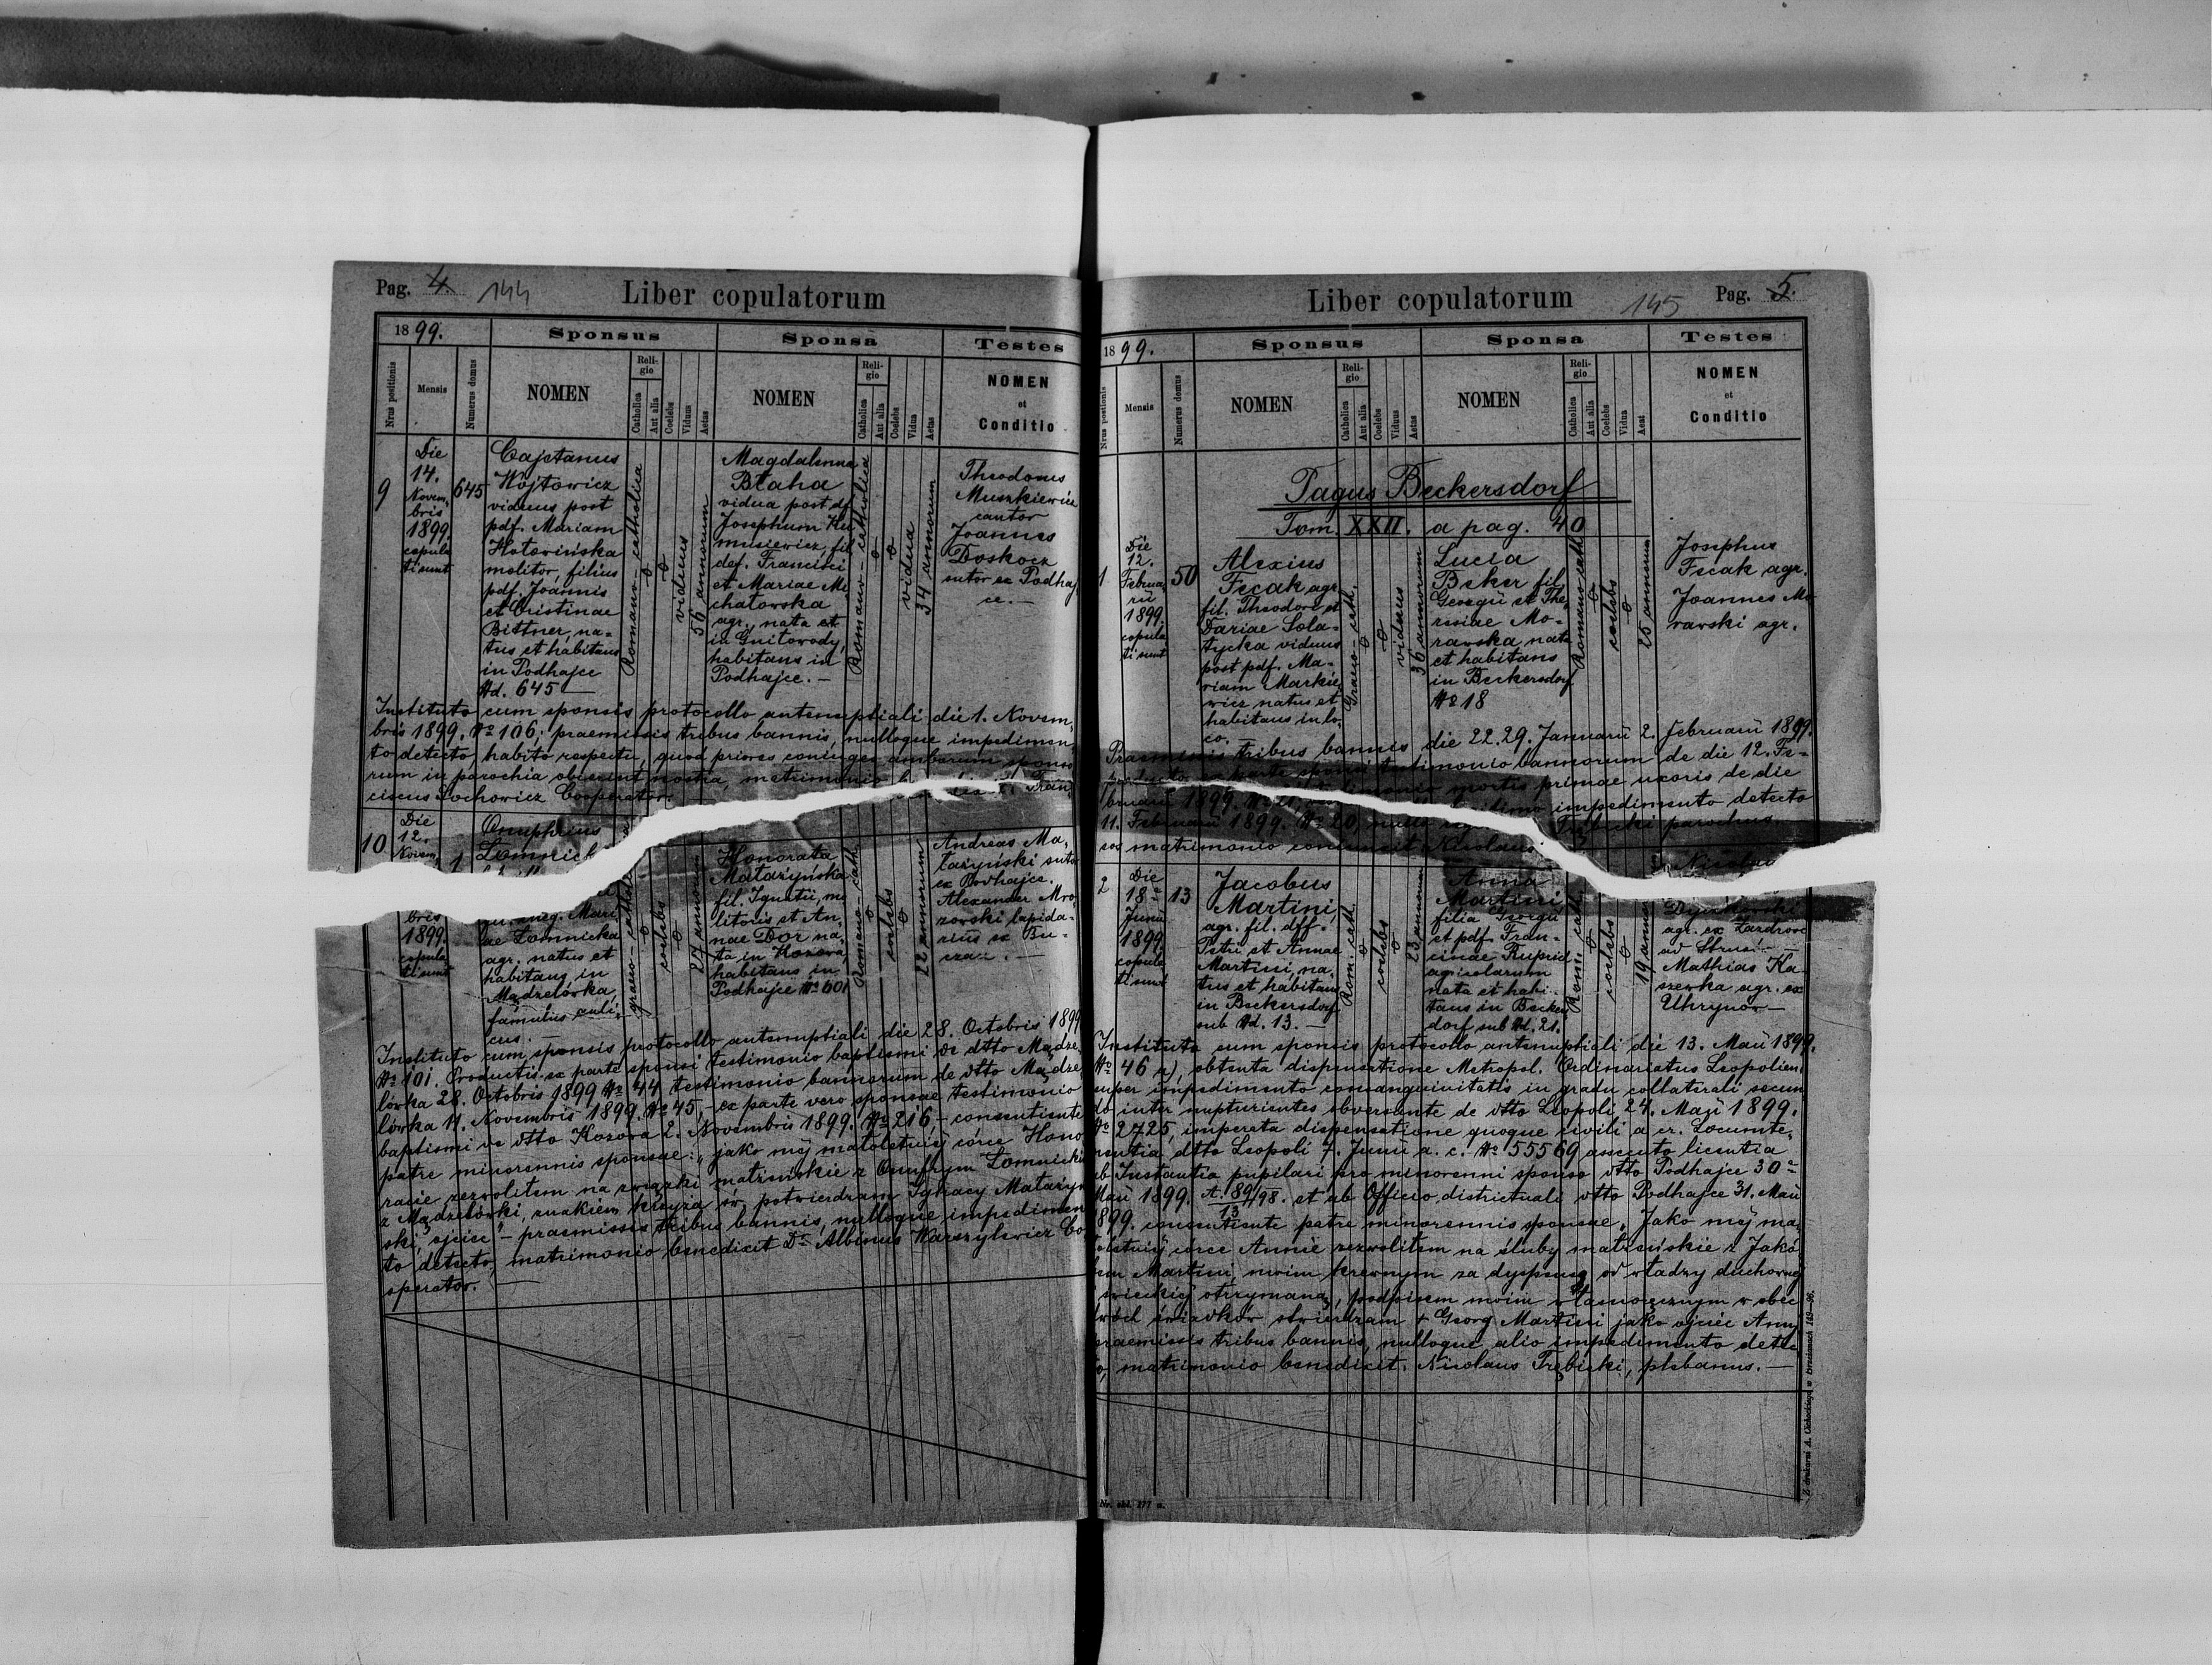 Pag. 4. 144
Liber copulatorum
1899.
Sponsus
Sponsa
Testes
Nrus positionis
Mensis
Numerus domus
NOMEN
Religio
Catholica
Aut alia
Coelebs
Viduus
Aetas
NOMEN
Religio
Catholica
Aut alia
Coelebs
Vidua
Aetas
NOMEN
et
Conditio
9
Die
14.
Novem-
bris
1899.
copula
ti sunt
645
Cajetanus
Wójtowicz
viduus post
pdf. Mariam
molitor, filius
pdf. Joannis
et Cristinae
Bittner, na-
tus et habitans
in Podhajce
Nd. 645 —
Romano-catholica
o
o
viduus
56 annorum
Magdalenna
Błaha
vidua post df.
Josephum
def. Francisci
et Mariae Mi
chatowska
agr., nata et
in Gnitowody,
habitans in
Podhajce. —
Romano-catholica
o
o
vidua
34 annorum
Theodorus
Muszkiewicz
cantor
Joannes
Doskocz
sutor ex Podhaj
ce. —
Instituto cum sponsis protocollo antenuptiali die 1. Novem-
bris 1899. No 106; praemissis tribus bannis, nulloque impedimen
to detecto, habito respectu, quod priores coniuges amborum sponso
rum in parochia obierint nostra, matrimonio Fran
ciscus Sochowicz Cooperator.
10
Die
12.
Novem-
1
Onuphrius
Mari
bris
1899.
copula
ti sunt
ae Łomnicka
agr. natus et
habitans in
Mądzelówka,
famulus auli-
cus. —
graeco-catholica
o
coelebs
o
27 annorum
Honorata
Matazyńska
fil. Ignatii, mo
litoris et An
nae Dor na-
ta in Kozowa,
habitans in
Podhajce No 601
Romano-cath.
o
coelebs
o
22 annorum
Andreas Ma-
tazyński sutor
ex Podhajce.
Alexander Mro
zowski lapida-
rius ex Bu-
Instituto cum sponsis protocollo antenuptiali die 28. Octobris 1899
No 101. Productis ex parte sponsi testimonio baptismi de dtto Mądze-
lówka 28. Octobris 1899 No 44 testimonio bannorum de dtto Mądze
lówka 11. Novembris 1899. No 45, — ex parte vero sponsae testimonio
baptismi de dtto Kozowa 2. Novembris 1899. No 216, — consentiente
patre minorennis sponsae: „jako mój małoletniej córce Hono
racie zezwolitem na związki małżeńskie z Onufrym Łomnickim
z Mądzelówki, znakiem krzyża św. potwierdzam Ignacy Matazyń
ski, ojciec" — praemissis tribus bannis, nulloque impedimen
to detecto, matrimonio benedixit Ds Albinus Warszylewicz Co
operator. —
Liber copulatorum
145 Pag. 5.
1899.
Sponsus
Sponsa
Testes
Nrus positionis
Mensis
Numerus domus
NOMEN
Religio
Catholica
Aut alia
Coelebs
Viduus
Aetas
NOMEN
Religio
Catholica
Aut alia
Coelebs
Vidua
Aeat
NOMEN
et
Conditio
Pagus Beckersdorf
Tom. XXII. a pag. 40
1
Die
12.
Februa-
rii
1899.
copula
ti sunt
50
Alexius
Fecak agr.
fil. Theodori et
Dariae Sola-
tycka viduus
post pdf. Ma-
riam Markie
wicz natus et
habitans in lo-
co. —
Graeco-cath.
o
o
viduus
36 annorum
Lucia
Beker fil.
Georgii et The-
resiae Mo-
rawska nata
et habitans
in Beckersdorf
No 18
Romano-cath.
o
coelebs
o
25 annorum
Josephus
Fecak agr.
Joannes Mo
rawski agr.
Praemissis tribus bannis die 22. 29. Januarii 2. Februarii 1899.
ex parte sponsi testimonio bannorum de die 12. Fe-
bruarii 1899. No 21, mortis primae uxoris de die
11. Februarii 1899. No 20, nullo legitimo impedimento detecto
eos matrimonio coniunxit Nicolaus Trębicki parochus.
2
Die
18a
Junii
1899
copula
ti sunt
13
Jacobus
Martini,
agr. fil. dff.
Petri et Annae
Martini, na-
tus et habitans
in Beckersdorf
sub Nd. 13. —
Rom. cath.
o
coelebs
o
23 annorum
Anna
Martini
filia Georgii
et pdf. Fran-
ciscae Rupric
agricolarum
nata et habi-
tans in Becker
dorf sub Nd. 21.
Rom. cath.
o
coelebs
o
19 annor.
agr. ex Zazdrosc
ad Strusi —
Mathias Ka-
szewka agr. ex
Uhrynów —
Instituto cum sponsis protocollo antenuptiali die 13. Maii 1899.
No 46 a), obtenta dispensatione Metropol. Ordinariatus Leopolien
super impedimento consanguinitatis in gradu collaterali secun
do inter nupturientes obversante de dtto Leopoli, 24. Maii 1899.
No 2725, imperata dispensatione quoque civili a cr. Locumte-
nentia dtto Leopoli 7. Junii a. c. No 55569 licentia
ab Instantia pupilari pro minorenni sponso dtto Podhajce 30a
Maii 1899. A. 89/13/98. et ab Officio districtuali dtto Podhajce 31. Maii
1899. consentiente patre minorennis sponsae „Jako mej ma-
łoletniej córce Annie zezwolitem na śluby małżeńskie z Jakó
bem Martini, moim krewnym za dyspensą od władzy duchownej
i świeckiej otrzymaną, podpisem moim własnoręcznym w obec
dwóch świadków stwierdzam + Georg Martini jako ojciec Anny
praemissis tribus bannis, nulloque alio impedimento detec
to, matrimonio benedixit. Nicolaus Trębicki, plebanus. —
Nr. obl. 277 a.
Z drukarni A. Cichockiego w Brzeżanach 149—96.